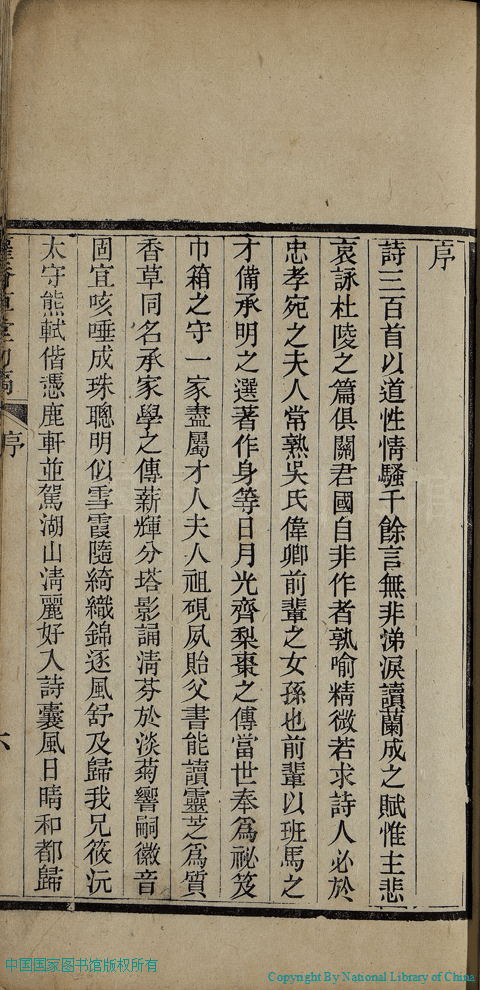 序
詩三百首以道性情騷千餘言無非涕淚讀蘭成之賦惟主悲
哀詠杜陵之篇俱關君國自非作者孰喻精微若求詩人必於
忠孝宛之夫人常熟吳氏偉卿前輩之女孫也前輩以班馬之
才備承明之選著作身等日月光齊梨棗之傳當世奉為祕笈
巾箱之守一家盡屬才人夫人祖硯夙貽父書能讀靈芝為質
香草同名承家學之傳薪輝分塔影誦清芬於淡菊響嗣徽音
固宜咳唾成珠聰明似雪霞隨綺織錦逐風舒及歸我兄筱沅
太守熊軾偕憑鹿軒並駕湖山清麗好入詩囊風日晴和都歸
序
六
中国国家图书馆版权所有
Copyright By National Library of China